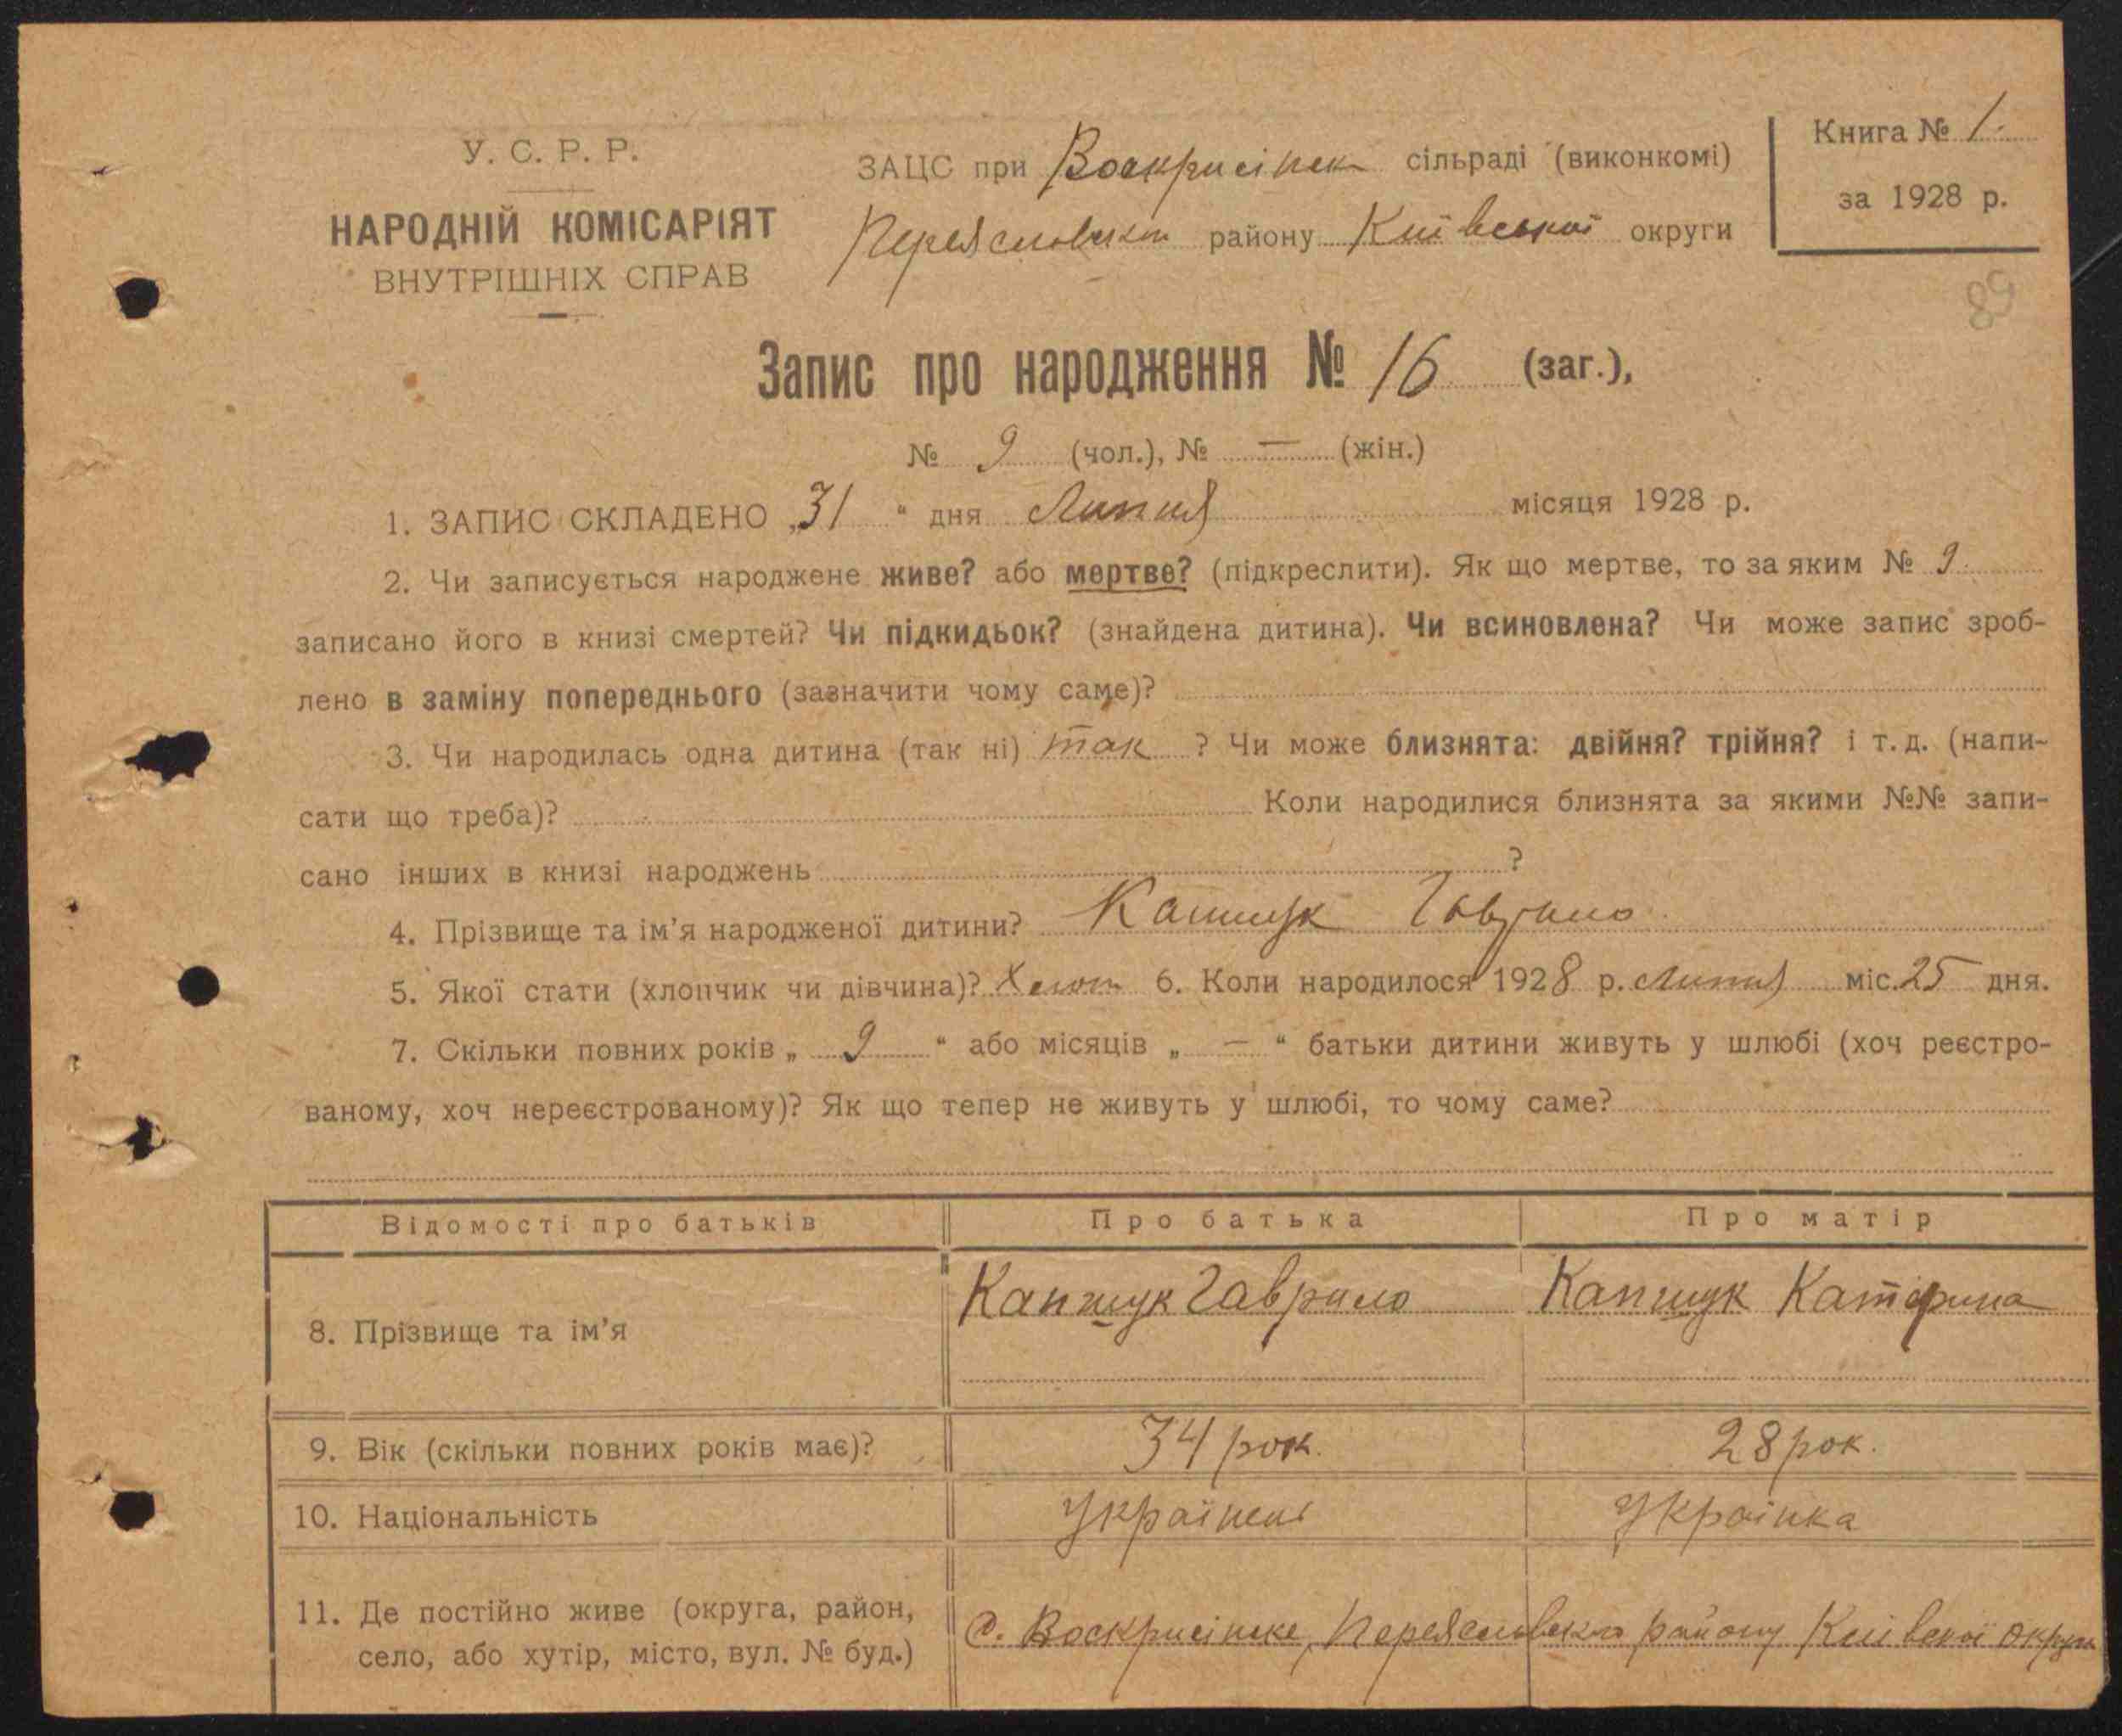 У. С. Р. Р.
НАРОДНІЙ КОМІСАРІЯТ
ВНУТРІШНІХ СПРАВ
ЗАЦС при Воскрисінск сільраді (виконкомі)
району Київської округи
Книга № 1.
за 1928 р.
89
Запис про народження № 16 (заг.),
№ 9 (чол.), № — (жін.)
1. ЗАПИС СКЛАДЕНО „31 “ дня Липня місяця 1928 р.
2. Чи записується народжене живе? або мертве? (підкреслити). Як що мертве, то за яким № 9
записано його в книзі смертей? Чи підкидьок? (знайдена дитина). Чи всиновлена? Чи може запис зроб-
лено в заміну попереднього (зазначити чому саме)?
3. Чи народилась одна дитина (так ні) так ? Чи може близнята: двійня? трійня? і т. д. (напи-
сати що треба)? Коли народилися близнята за якими №№ запи-
сано інших в книзі народжень ?
4. Прізвище та ім’я народженої дитини? Капшук Гаврило
5. Якої стати (хлопчик чи дівчина)? Хлоп 6. Коли народилося 1928 р. Липня міс. 25 дня.
7. Скільки повних років „ 9 “ або місяців „ — “ батьки дитини живуть у шлюбі (хоч реєстро-
ваному, хоч нереєстрованому)? Як що тепер не живуть у шлюбі, то чому саме?
Відомості про батьків Про батька Про матір
8. Прізвище та ім’я Капшук Гаврило Капшук Катерина
9. Вік (скільки повних років має)? 34 рок. 28 рок.
10. Національність Українець Українка
11. Де постійно живе (округа, район,
село, або хутір, місто, вул. № буд.)
с. Воскрисінске, району Київської округи